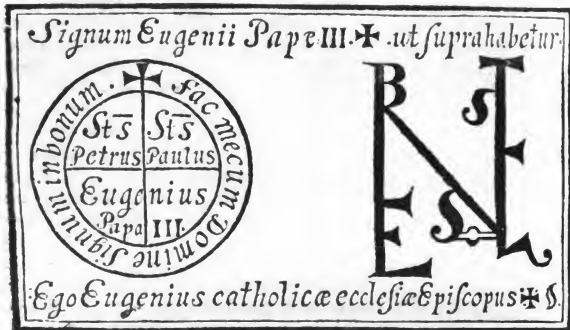 Signum Eugenii Papę III. ✠ . ut ſupra habetur.
✠ Fac mecum Domine Signum in bonum .
Sts̄ Sts̄
Petrus Paulus
Eugenius
Papa III.
Ego Eugenius catholicæ eccleſiæ Epiſcopus ✠ S.